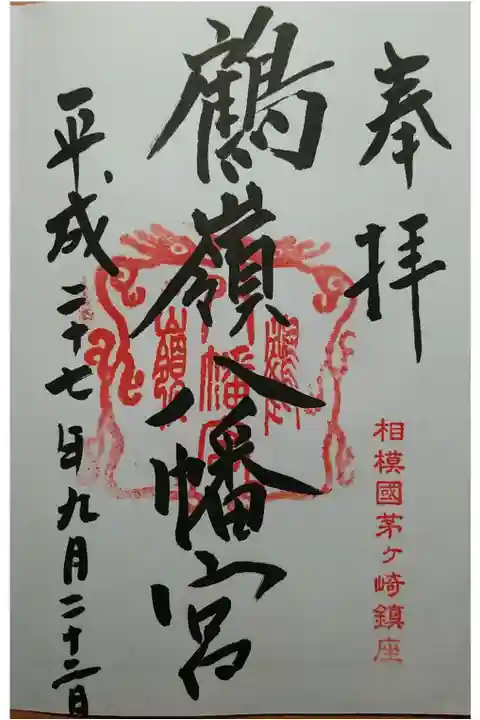 奉拝
相模國茅ヶ崎鎮座
鶴嶺八幡宮
平成二十七年九月二十二日